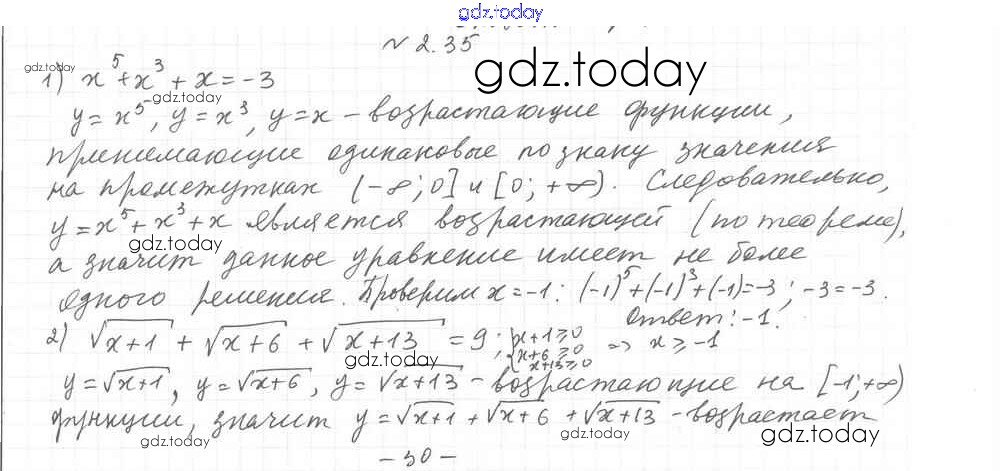 gdz.today
№ 2.35
gdz.today
1) x⁵ + x³ + x = -3
gdz.today
gdz.today
y = x⁵, y = x³, y = x – возрастающие функции,
принимающие одинаковые по знаку значения
на промежутках (-∞; 0] и [0; +∞). Следовательно,
y = x⁵ + x³ + x является возрастающей (по теореме),
gdz.today
а значит данное уравнение имеет не более
одного решения. Проверим x = -1: (-1)⁵ + (-1)³ + (-1) = -3; -3 = -3.
Ответ: -1.
2) √x+1 + √x+6 + √x+13 = 9; { x+1 ≥ 0 x+6 ≥ 0 x+13 ≥ 0 => x ≥ -1
gdz.today
y = √x+1, y = √x+6, y = √x+13 – возрастающие на [-1; +∞)
функции, значит y = √x+1 + √x+6 + √x+13 – возрастает
gdz.today
gdz.today
gdz.today
- 30 -